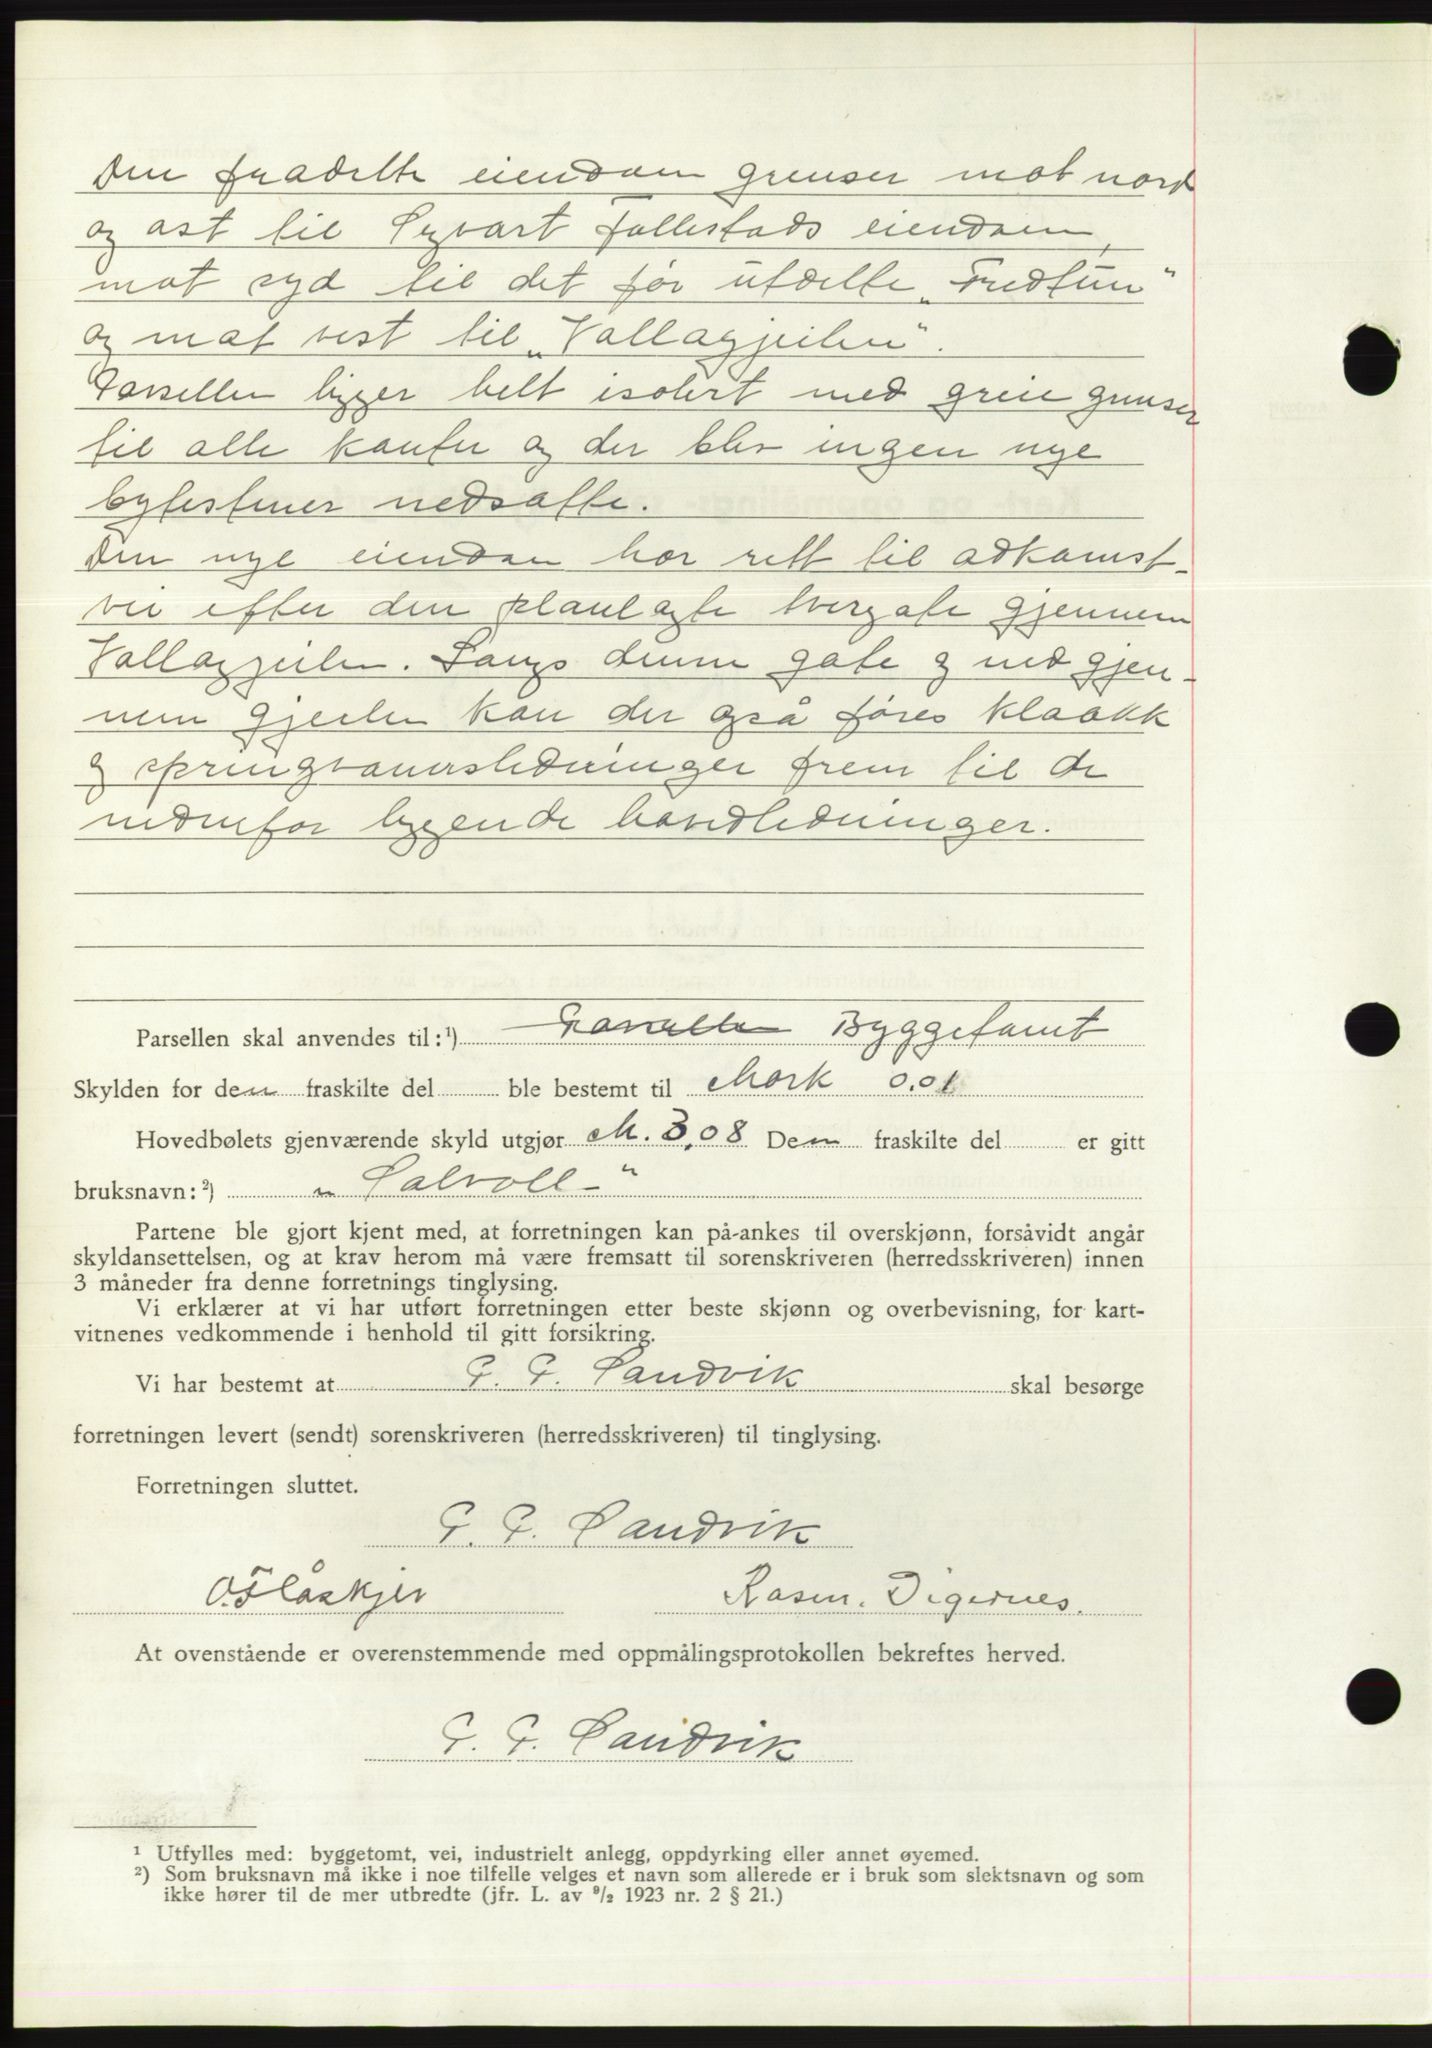 Den fradelte eiendom grenser mot nord
og øst til Syvart Follestads eiendom,
mot syd til det før utdelte „Fredtun"
og mot vest til „Vallagjeilen".
Parsellen ligger helt isolert med greie grenser
til alle kanter og der blev ingen nye
bytestener nedsatte.
Den nye eiendom har rett til adkomst-
vei efter den planlagte tvergate gjennem
Vallagjeilen. Langs denne gate og ned gjen-
nem gjeilen kan der også føres kloakk
og springvannsledninger frem til de
nedenfor liggende hovedledninger.
Parsellen skal anvendes til:¹) Parsellen Byggetomt
Skylden for den fraskilte del ble bestemt til Mark 0.01
Hovedbølets gjenværende skyld utgjør M. 3,08 Den fraskilte del er gitt
bruksnavn:²) „Solvoll"
Partene ble gjort kjent med, at forretningen kan på-ankes til overskjønn, forsåvidt angår
skyldansettelsen, og at krav herom må være fremsatt til sorenskriveren (herredsskriveren) innen
3 måneder fra denne forretnings tinglysing.
Vi erklærer at vi har utført forretningen etter beste skjønn og overbevisning, for kart-
vitnenes vedkommende i henhold til gitt forsikring.
Vi har bestemt at G. G. Sandvik skal besørge
forretningen levert (sendt) sorenskriveren (herredsskriveren) til tinglysing.
Forretningen sluttet.
G. G. Sandvik
O. Flåskjer Rasm. Digernes.
At ovenstående er overenstemmende med oppmålingsprotokollen bekreftes herved.
G. G. Sandvik
¹ Utfylles med: byggetomt, vei, industrielt anlegg, oppdyrking eller annet øyemed.
²) Som bruksnavn må ikke i noe tilfelle velges et navn som allerede er i bruk som slektsnavn og som
ikke hører til de mer utbredte (jfr. L. av ⁹/₂ 1923 nr. 2 § 21.)